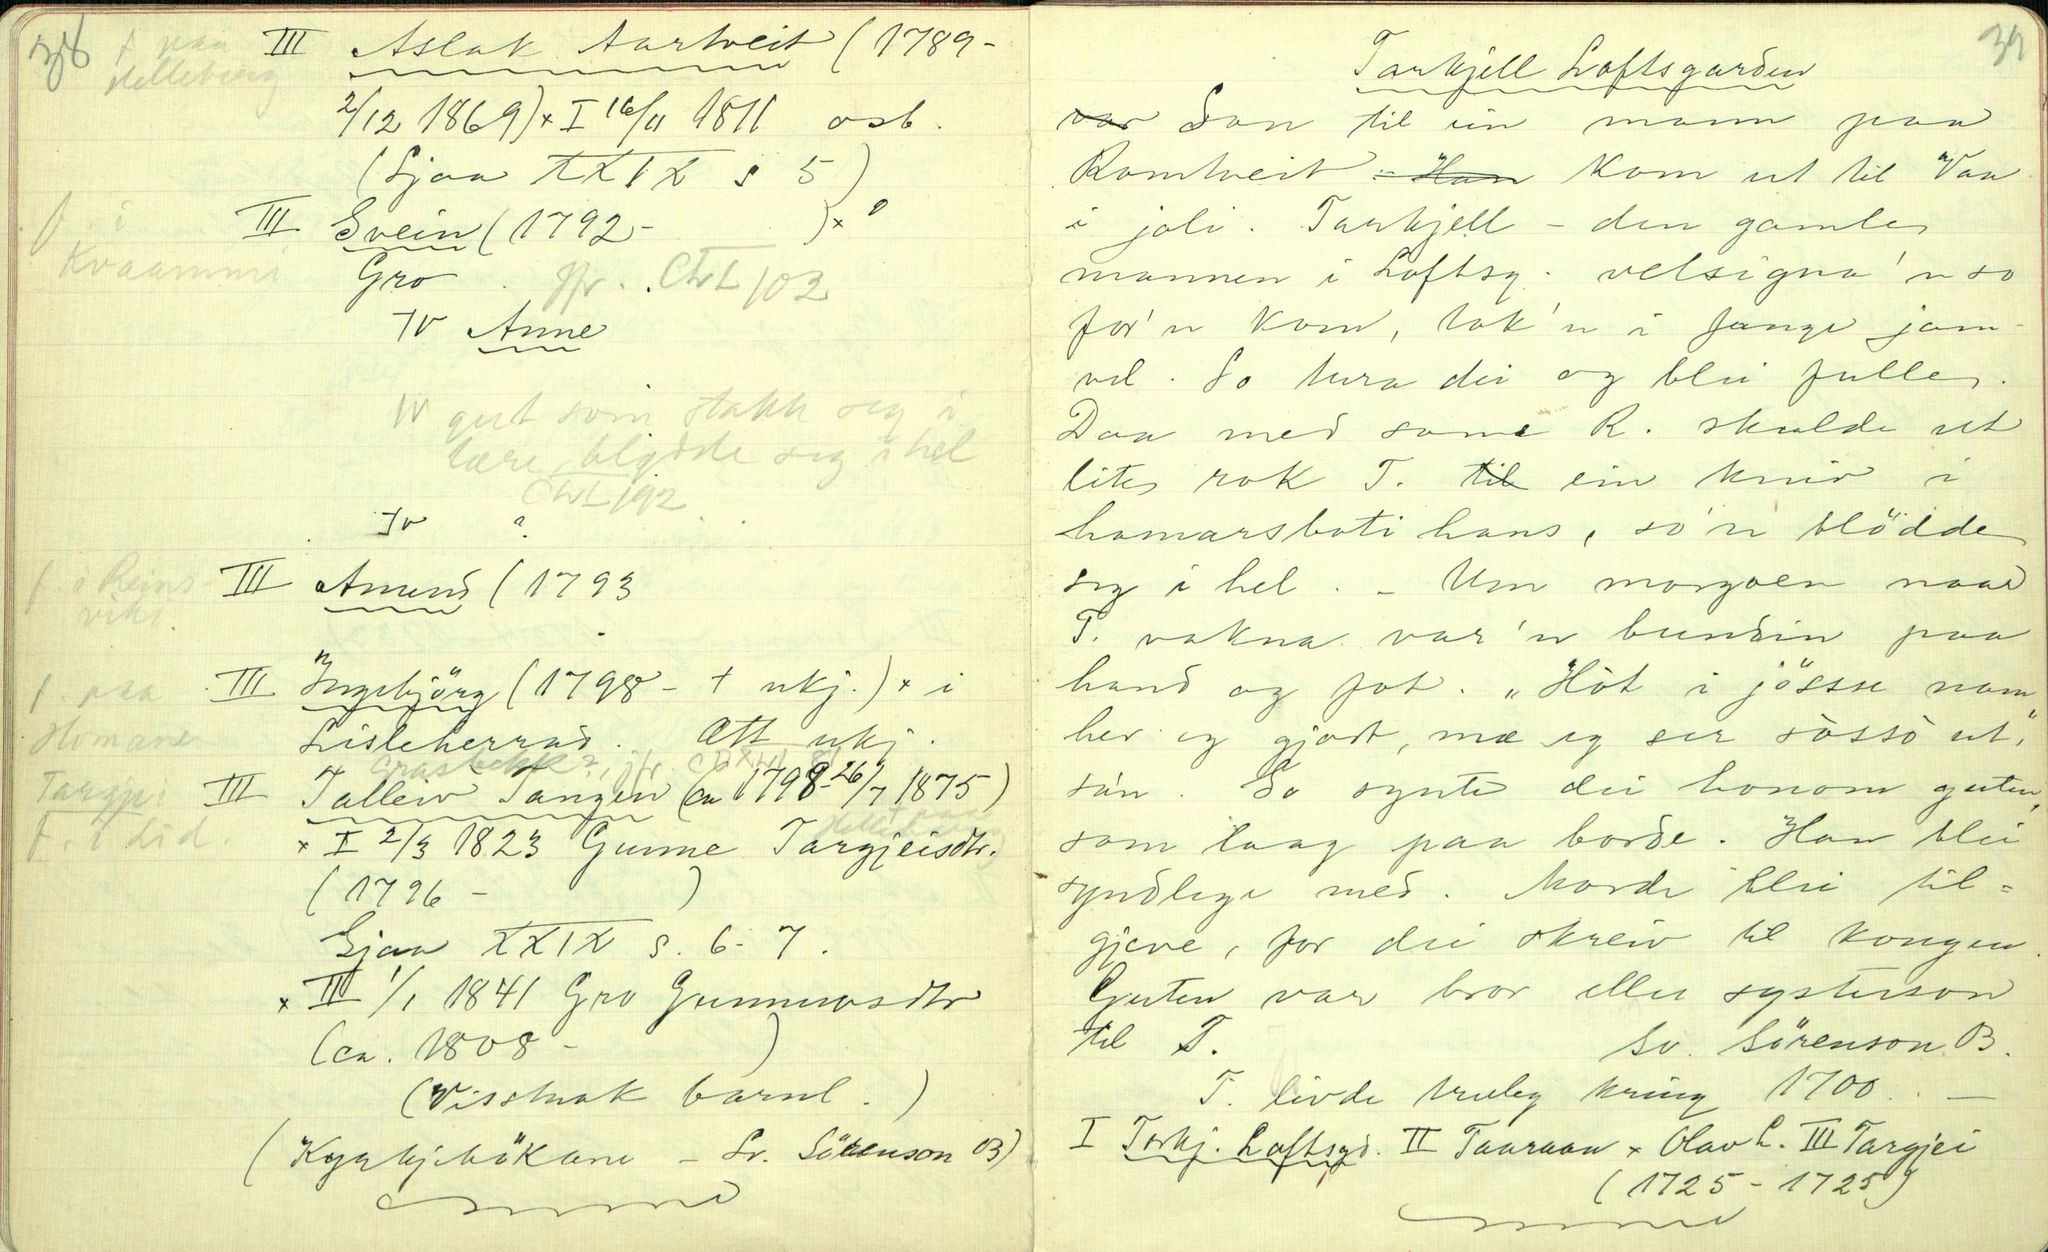 38
f. paa
Helleberg
III Aslak Aartveit (1789 -
2/12 1869) × I 16/11 1811 osb.
(Sjaa XXIX s 5)
f. i
Kvaammi
III Svein (1792 - ) × ?
Gro jfr. CXVI 102
IV Anne
IV gut som stakk seg i
lære, blødde seg i hel
CXVI 192
IV ?
f. i Reins
viki.
III Amund (1793
f. paa
Homane
III Ingebjörg (1798 - † ukj.) × i
Lisleherrad. Ætt ukj.
Targjei
f. i Lid.
III Talleiv Tangen (ca 1798 - 26/7 1875)
× I 2/3 1823 Gunne Targjeisdtr.
(1796 - )
Sjaa XXIX s. 6-7.
× II 1/1 1841 Gro Gunnuvsdtr
(ca. 1808 - )
(Visstnok barnl.)
(Kyrkjebökane - Sv. Sörenson B)
39
Tarkjell Loftsgarden
var Son til ein mann paa
Romtveit - Han kom ut til Vaa
i joli. Tarkjell - den gamle
mannen i Loftsg. velsigna 'n so
for'n kom, tok'n i fange jam-
vel. So tura dei og blei fulle.
Daa med same R. skulde ut
lite rok T. til ein kniv i
hamarsboti hans, so'n blödde
seg i hel. - Um morgoen naar
T. vakna var'n bundin paa
hand og fot. "Hòt i jösse namn
hev eg gjort, mæ eg ser sòssò ut",
sa'n. So synte dei honom guten,
som laag paa borde. Han blei
syndlege med. Morde blei til-
gjeve, for dei skreiv til kongen.
Guten var bror eller systerson
til T. Sv. Sörenson B.
T. livde truleg kring 1700. —
I Torkj. Loftsgd. II Taaraan × Olav L. III Targjei
(1725 - 1725)